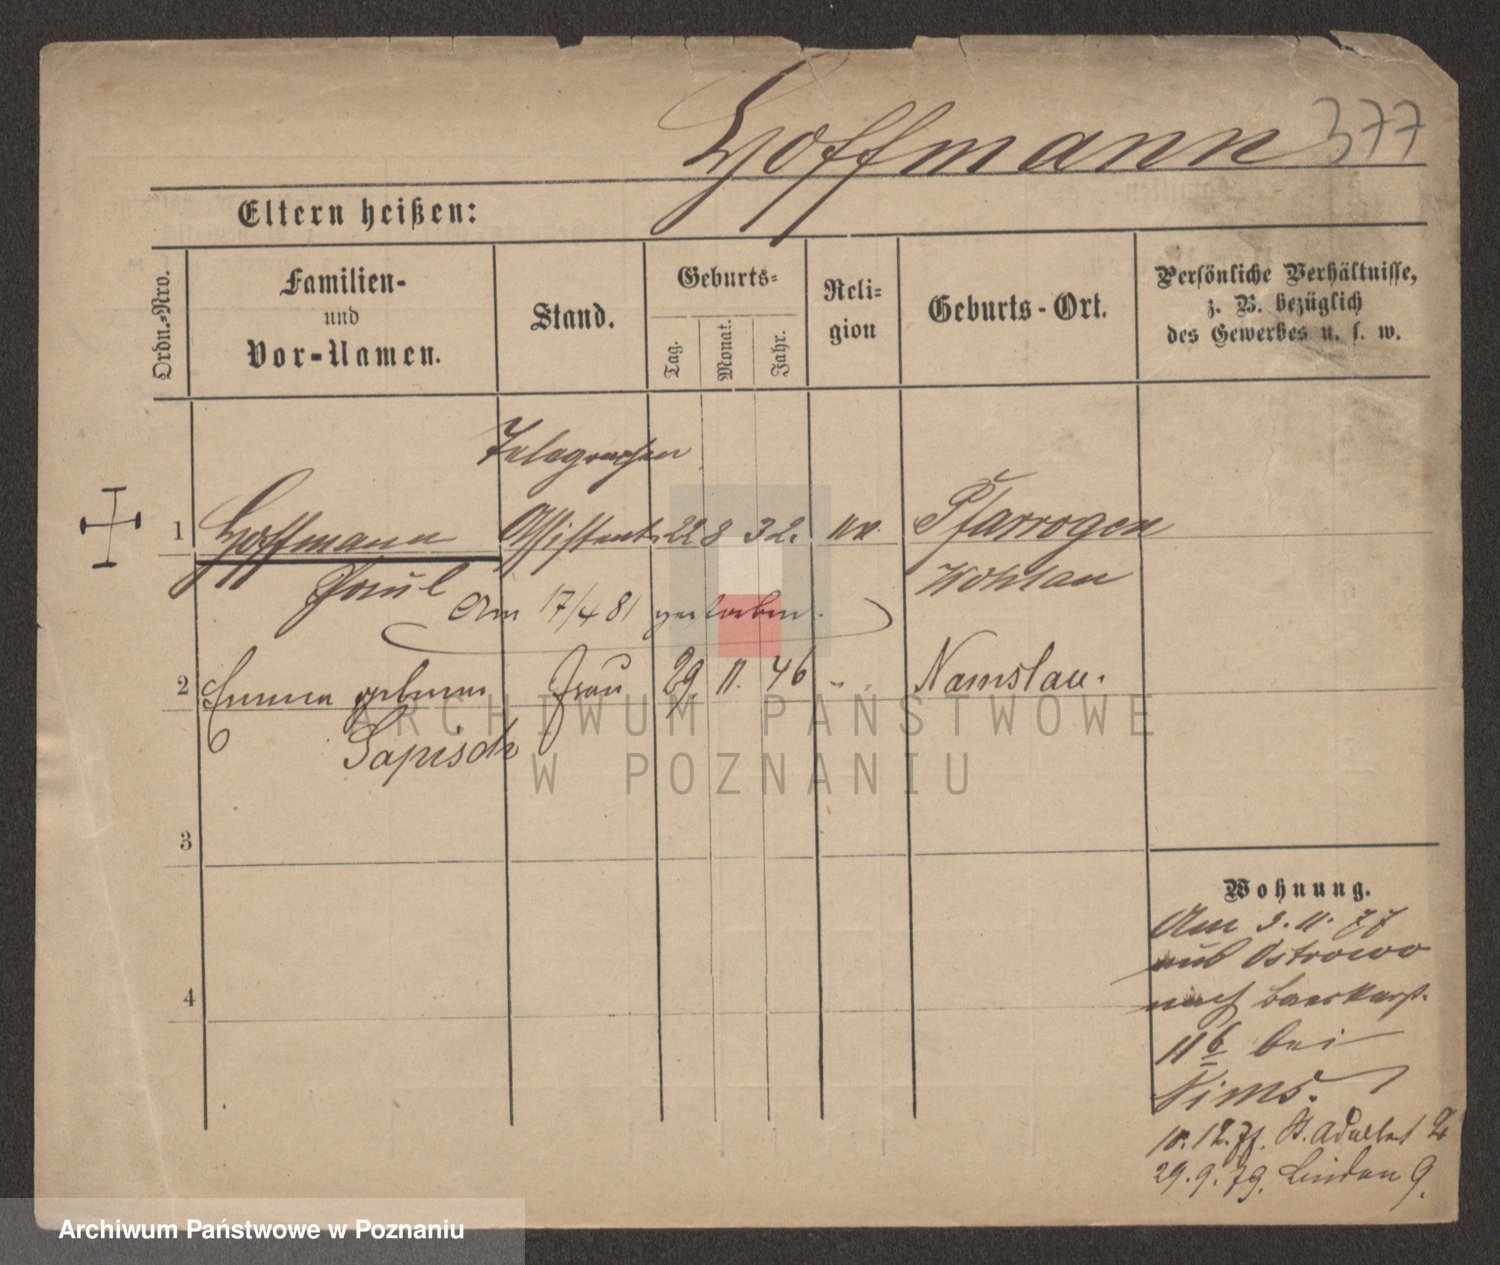 Hoffmann 377
Eltern heißen:
Ordn.-Nro.
Familien-
und
Vor-Namen.
Stand.
Geburts-
Tag.
Monat.
Jahr.
Reli-
gion
Geburts-Ort.
Persönliche Verhältnisse,
z. B. bezüglich
des Gewerbes u. s. w.
Telegraphen
1 Hoffmann Assistent. 22 8 32.
Paul
Wohlau
Am 17/4 81 gestorben.
2 Emma geborene Frau 29. 11. 46 " Namslau.
Sapisch
3
4
Wohnung.
Am 3. 11. 77
aus Ostrowo
nach
11 b bei
Nims.
10. 12. 77. St. Adalbert
29. 9. 79. Linden 9.
ARCHIWUM PAŃSTWOWE
W POZNANIU
Archiwum Państwowe w Poznaniu